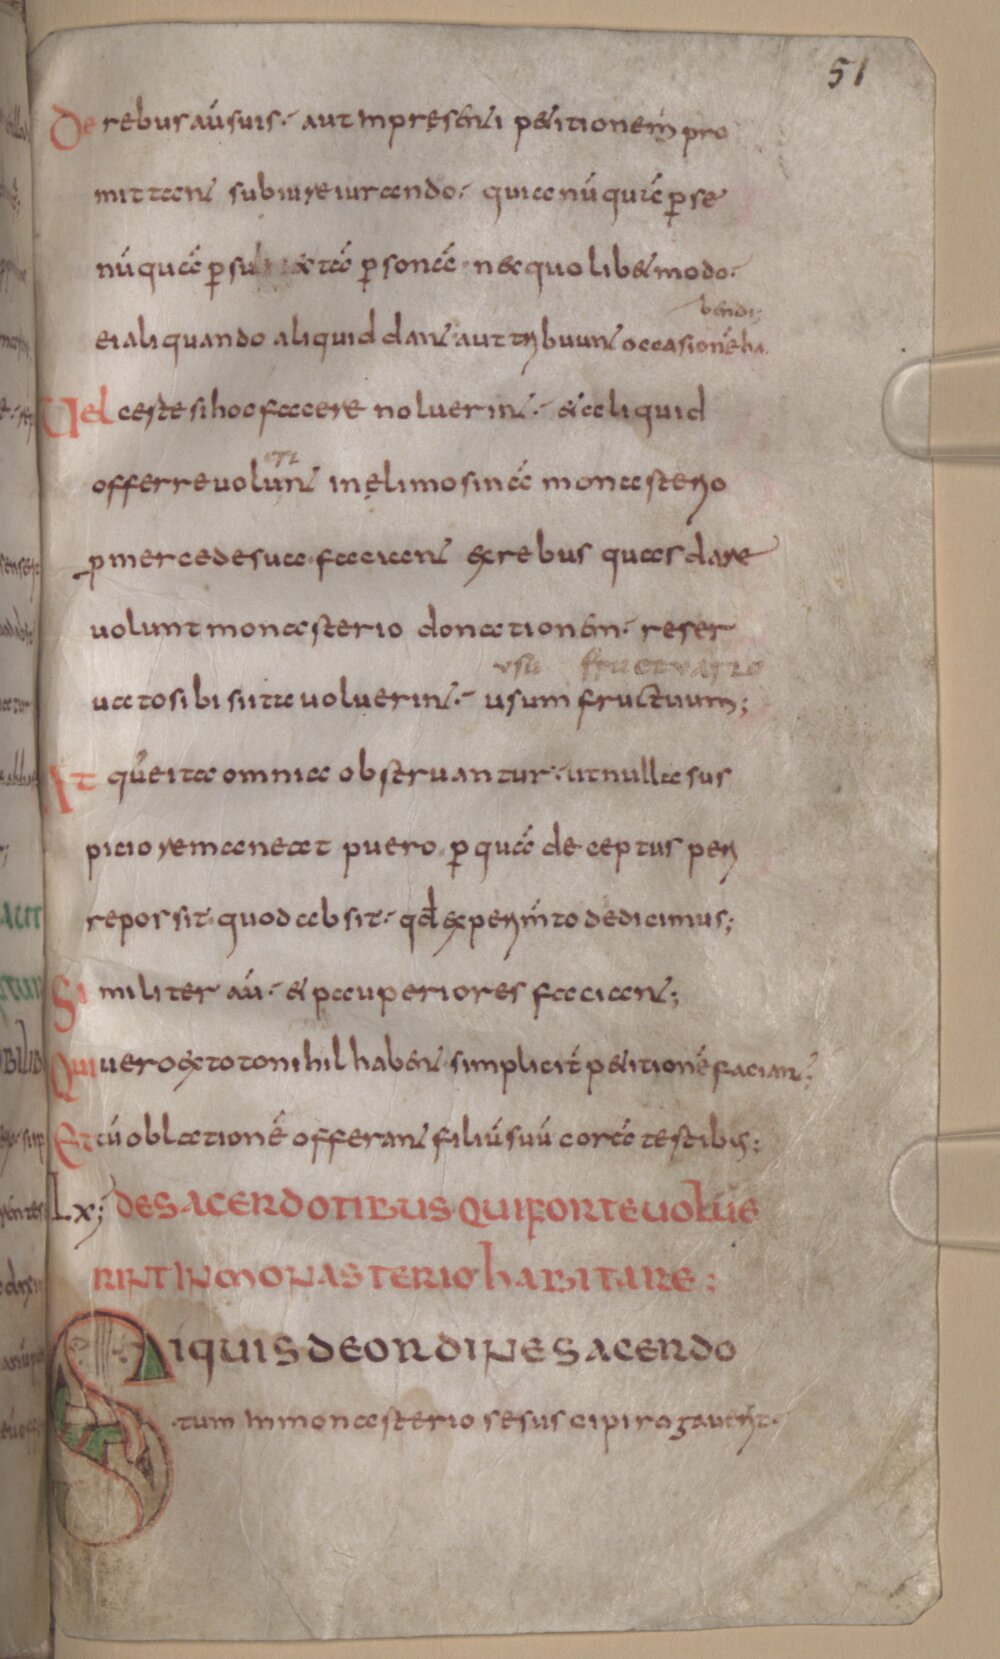 51
De rebus aū suis· aut in presenti petitionem pro
mittant sub iureiurando· quia nūquā p se
nūquā p su ectā psonā· nec quolibet modo·
bendi;
ei aliquando aliquid dant· aut tribuunt occasionē ha
Uel certe si hoc facere noluerint· et aliquid
eri
offerre volunt in elimosinā monasterio
p mercede sua· faciant ex rebus quas dare
volunt monasterio donationem· reser
usu fructuario
uato sibi si ita uoluerint· usum fructuum;
Atque ita omnia obseruantur· ut nulla sus
picio remaneat puero p quā deceptus peri
re possit· quod absit· qđ experimto dedicimus;
Similiter aū· et pauperiores faciant;
Qui uero ex toto nihil habent· simplicit petitionē faciant;
Et cū oblationē offerant filiū suū corā testibus;
Lx; DE SACERDOTIBUS QUI FORTE VOLUE
RINT IN MONASTERIO HABITARE;
SI QUIS DE ORDINE SACERDO
tum in monasterio se suscipi rogauerit·